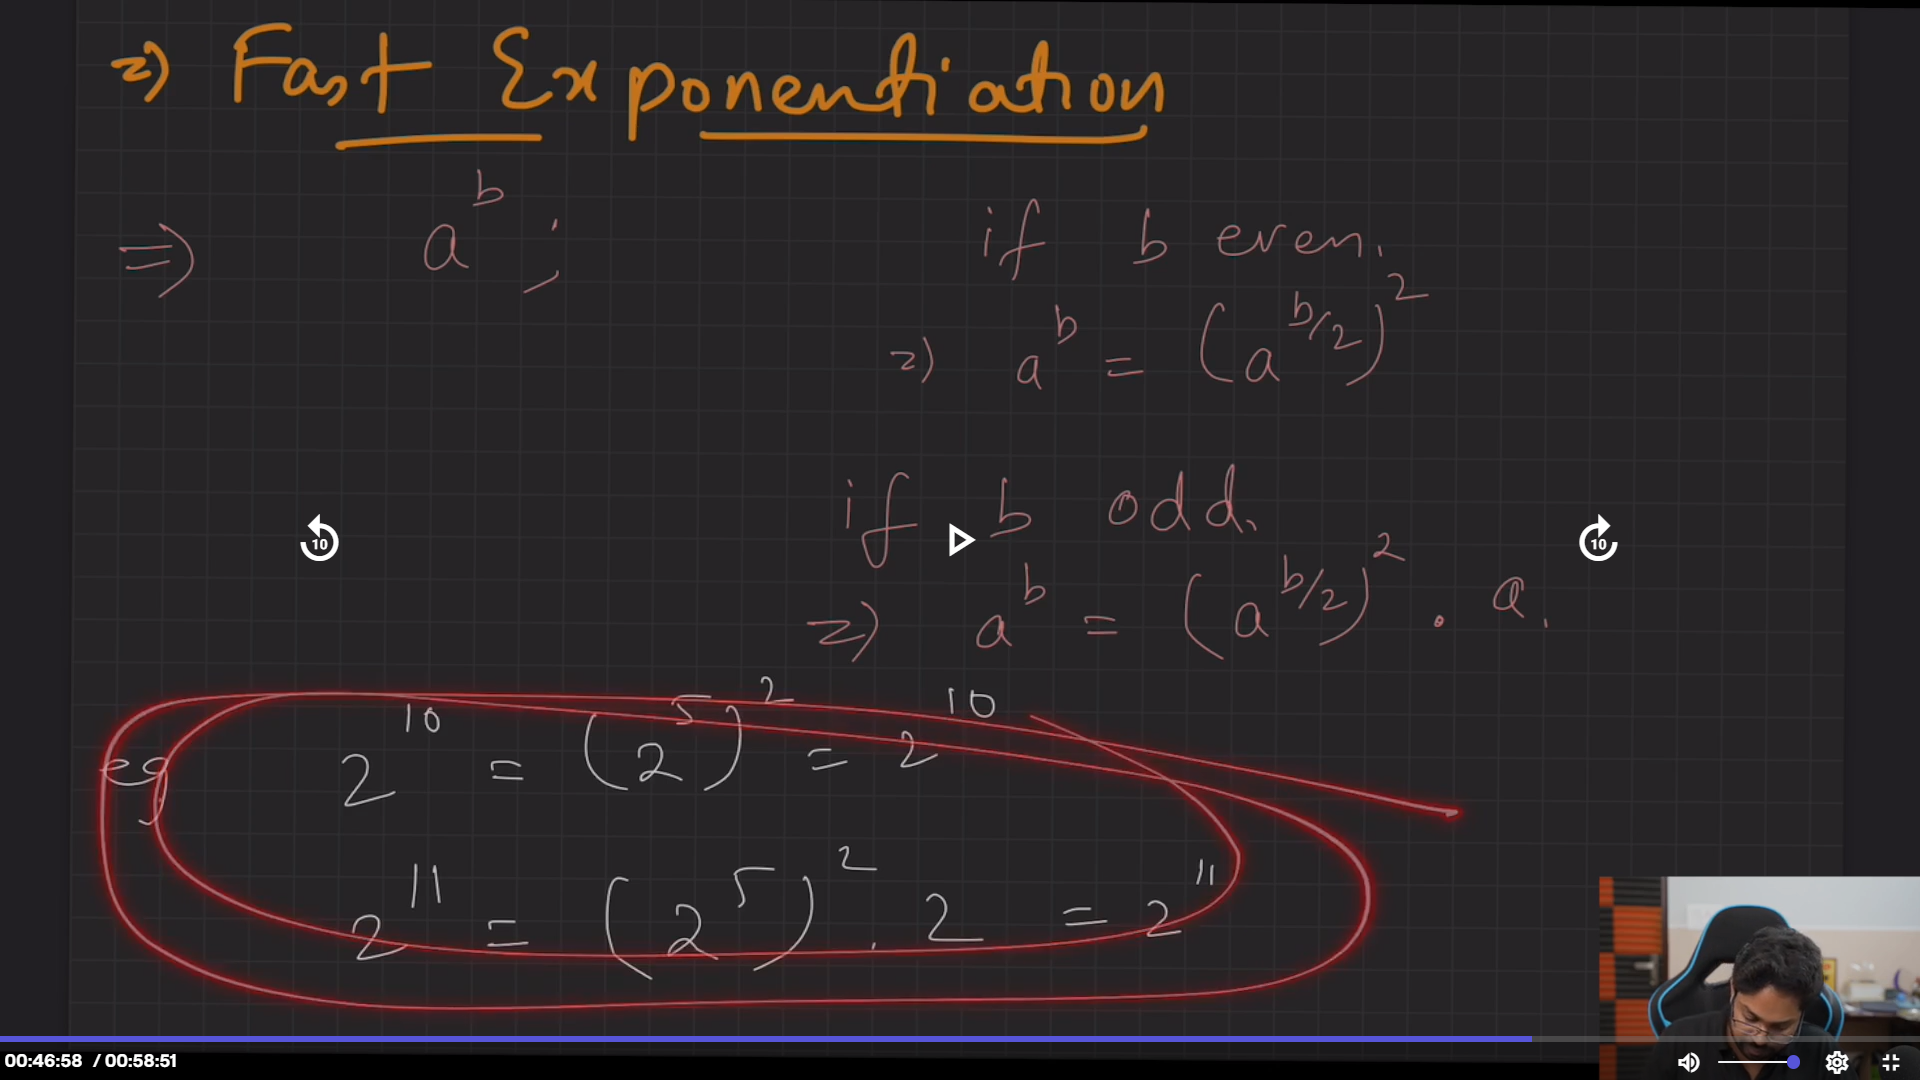 => Fast Exponentiation
=> a^b ;
if b even.
=> a^b = (a^b/2)^2
if b odd.
=> a^b = (a^b/2)^2 . a.
eg 2^10 = (2^5)^2 = 2^10
2^11 = (2^5)^2 . 2 = 2^11
10
10
00:46:58 / 00:58:51